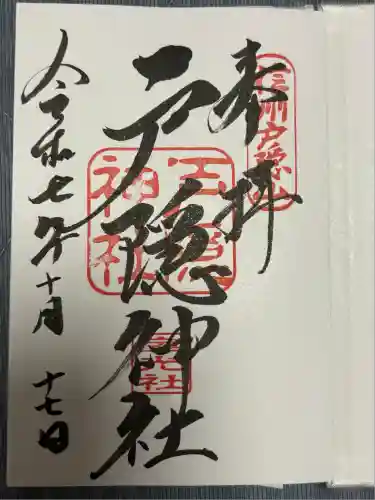 奉拝
信州戸隠山
戸隠神社
宝光社
令和七年十月十七日